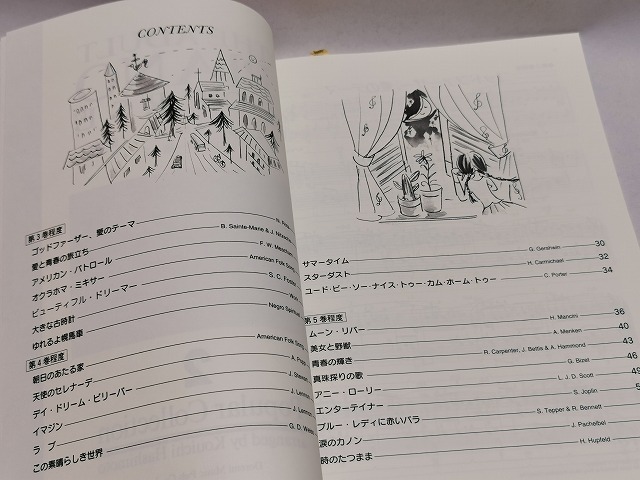 CONTENTS
第3巻程度
ゴッドファーザー、愛のテーマ
愛と青春の旅立ち B. Sainte-Marie & J. Nitzsche
アメリカン・パトロール F. W. Meacham
オクラホマ・ミキサー American Folk Song
ビューティフル・ドリーマー S. C. Foster
大きな古時計
ゆれるよ幌馬車 Negro Spiritual
第4巻程度
朝日のあたる家 American Folk Song
天使のセレナーデ
デイ・ドリーム・ビリーバー J. Stewart
イマジン J. Lennon
ラブ J. Lennon
この素晴らしき世界 G. D. Weiss
サマータイム G. Gershwin 30
スターダスト H. Carmichael 32
ユード・ビー・ソー・ナイス・トゥー・カム・ホーム・トゥー C. Porter 34
第5巻程度
ムーン・リバー H. Mancini 36
美女と野獣 A. Menken 40
青春の輝き R. Carpenter, J. Bettis & A. Hammond 43
真珠採りの歌 G. Bizet 46
アニー・ローリー L. J. D. Scott 49
エンターテイナー S. Joplin
ブルー・レディに赤いバラ S. Tepper & R. Bennett
涙のカノン J. Pachelbel
時のたつまま H. Hupfeld